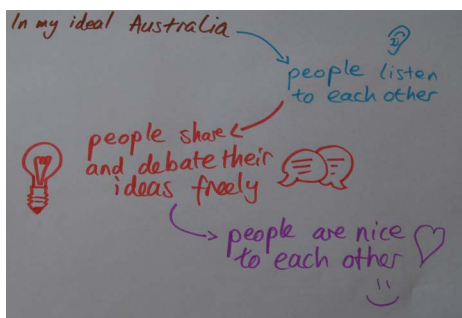 In my ideal Australia
people listen
to each other
people share
and debate their
ideas freely
people are nice
to each other